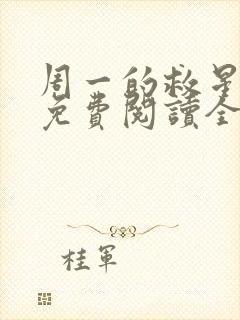 周一的救星
免費閱讀全
桂軍